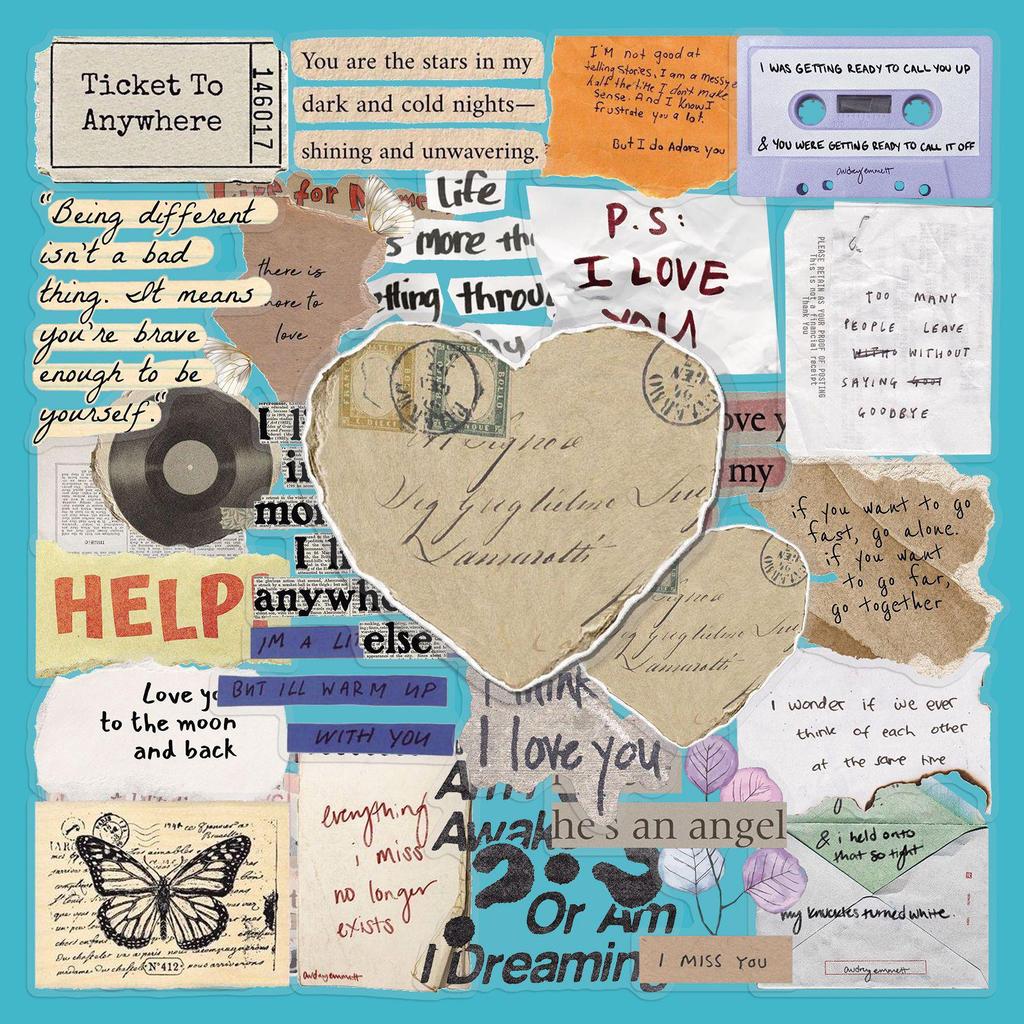 Ticket To
Anywhere
146017
You are the stars in my
dark and cold nights—
shining and unwavering.
I'M not good at
telling stories, I am a messy
half the time I don't make
sense. And I know I
frustrate you a lot.
But I do Adore you
I WAS GETTING READY TO CALL YOU UP
& YOU WERE GETTING READY TO CALL IT OFF
audreyemmett
"Being different
isn't a bad
thing. It means
you're brave
enough to be
yourself."
for
there is
more to
love
life
s more th
etting throu
P.S:
I LOVE
YOU
PLEASE RETAIN AS YOUR PROOF OF POSTING
This is not a financial receipt
Thank You
TOO MANY
PEOPLE LEAVE
WITHOUT
SAYING
GOODBYE
ove y
my
mo
anywhe
else
if you want to go
fast, go alone.
if you want
to go far,
go together
HELP
IM A LI
BUT ILL WARM UP
WITH YOU
Love yo
to the moon
and back
think
I love you
I wonder if we ever
think of each other
at the same time
Am I
Awak
he's an angel
Or Am
I Dreamin
I MISS YOU
everything
i miss
no longer
exists
audreyemmett
Nº412
& i held onto
that so tight
my knuckles turned white.
audreyemmett